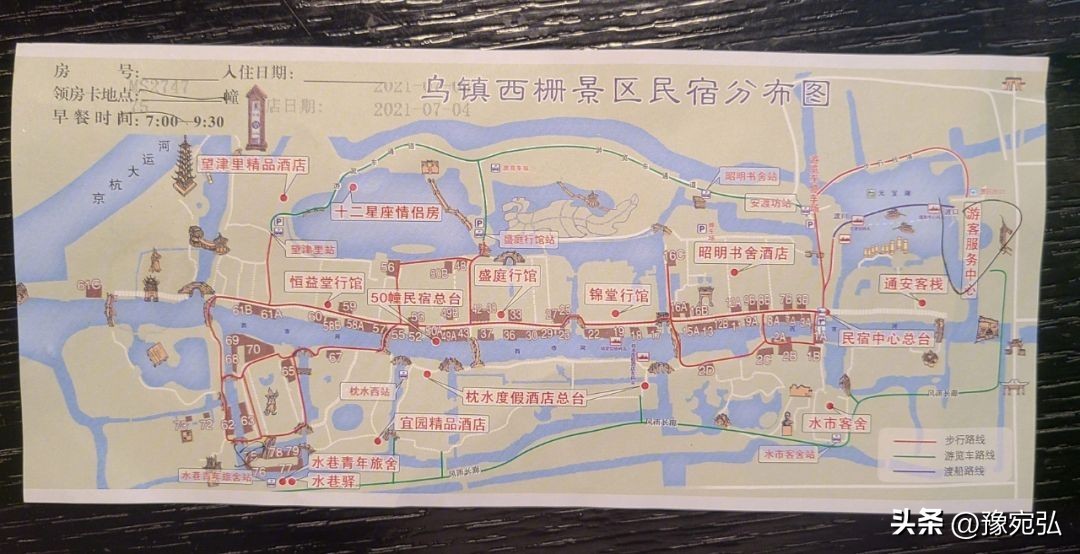 房 号: 入住日期:
领房卡地点: 幢
早餐时间: 7:00 — 9:30
NS2747
店日期:
2021-07-04
乌镇西栅景区民宿分布图
京杭大运河
望津里精品酒店
十二星座情侣房
游览车站
昭明书舍站
安渡坊站
望津里站
盛庭行馆站
昭明书舍酒店
游客服务中心
渡口
渡口
恒益堂行馆
盛庭行馆
50幢民宿总台
锦堂行馆
通安客栈
民宿中心总台
61C
61B
61A
60
59
58B
58A
57
56
55
52
50A
49A
49B
48
43
37
36
33
30
29
22
19
18
17
16C
16A
16B
15A
13
12A
9A
2A
2C
2D
1B
67
枕水西站
枕水度假酒店总台
宜园精品酒店
水市客舍
水市客舍站
风雨长廊
风雨长廊
风雨长廊
69
68
70
65
62
63
73
72
75
78
79
76
77
水巷青年旅舍站
水巷青年旅舍
水巷驿
步行路线
游览车路线
渡船路线
头条 @豫宛弘